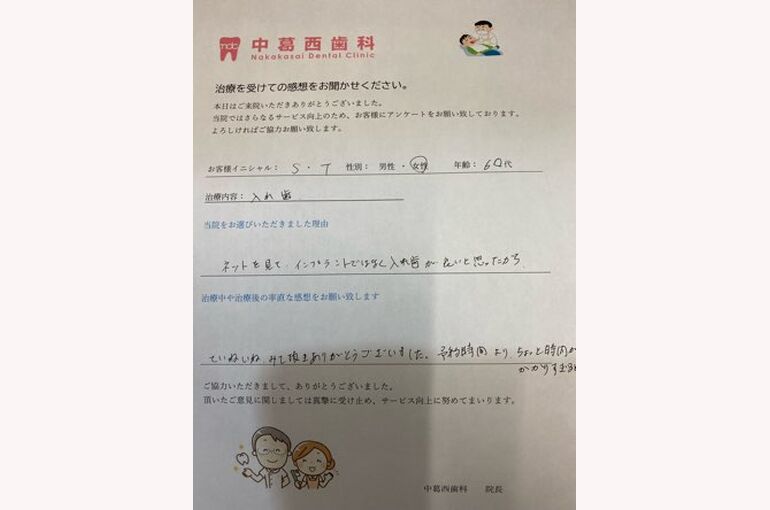 mdc 中葛西歯科
Nakakasai Dental Clinic
治療を受けての感想をお聞かせください。
本日はご来院いただきありがとうございました。
当院ではさらなるサービス向上のため、お客様にアンケートをお願い致しております。
よろしければご協力お願い致します。
お客様イニシャル： S・T 性別： 男性・女性 年齢： 60代
治療内容： 入れ歯
当院をお選びいただきました理由
ネットを見て、インプラントではなく入れ歯が良いと思ったから
治療中や治療後の率直な感想をお願い致します
ていねいね、みて頂きありがとうございました。予約時間より、ちょっと時間が
かかりすぎると
ご協力いただきまして、ありがとうございました。
頂いたご意見に関しましては真摯に受け止め、サービス向上に努めてまいります。
中葛西歯科 院長